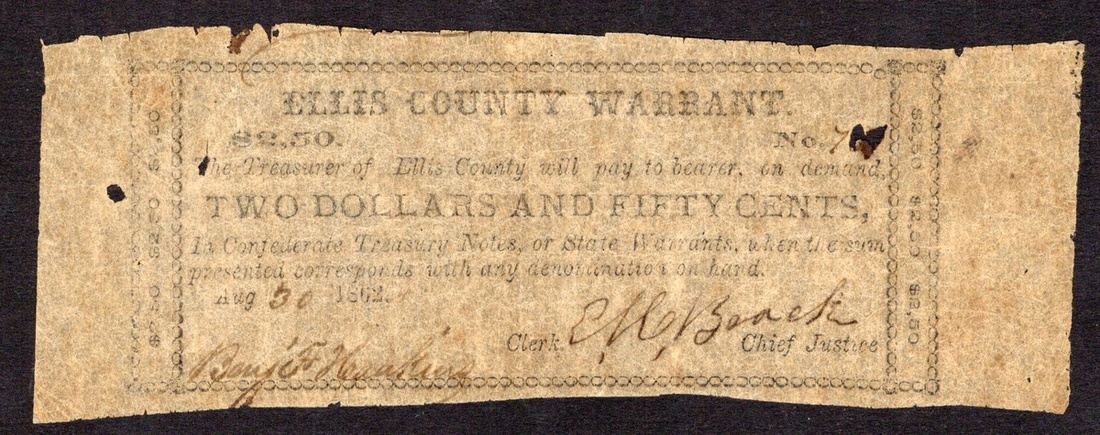 ELLIS COUNTY WARRANT.
$2.50. No. 7
The Treasurer of Ellis County will pay to bearer, on demand,
TWO DOLLARS AND FIFTY CENTS,
In Confederate Treasury Notes, or State Warrants, when the sum
presented corresponds with any denomination on hand.
Aug 30 1862.
Clerk Chief Justice
Benj F
$2.50 $2.50 $2.50
$2.50 $2.50 $2.50